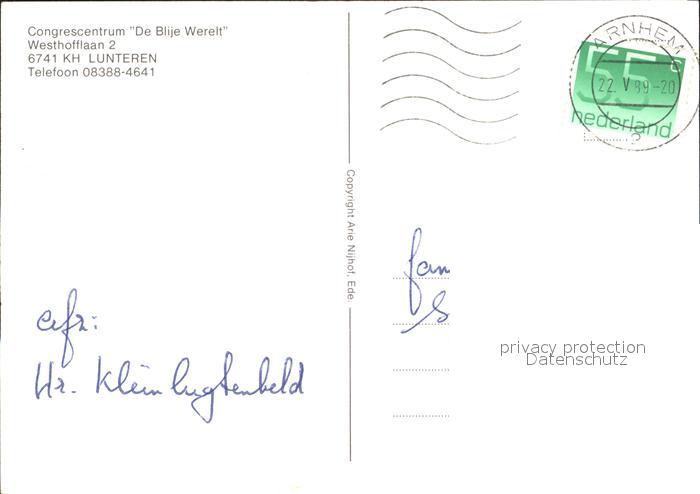 Congrescentrum "De Blije Werelt"
Westhofflaan 2
6741 KH LUNTEREN
Telefoon 08388-4641
ARNHEM
22. V 89-20
55
nederland
Copyright Arie Nijhof, Ede.
fam
S
afz:
Hr. Klein Lugtenbeld
privacy protection
Datenschutz